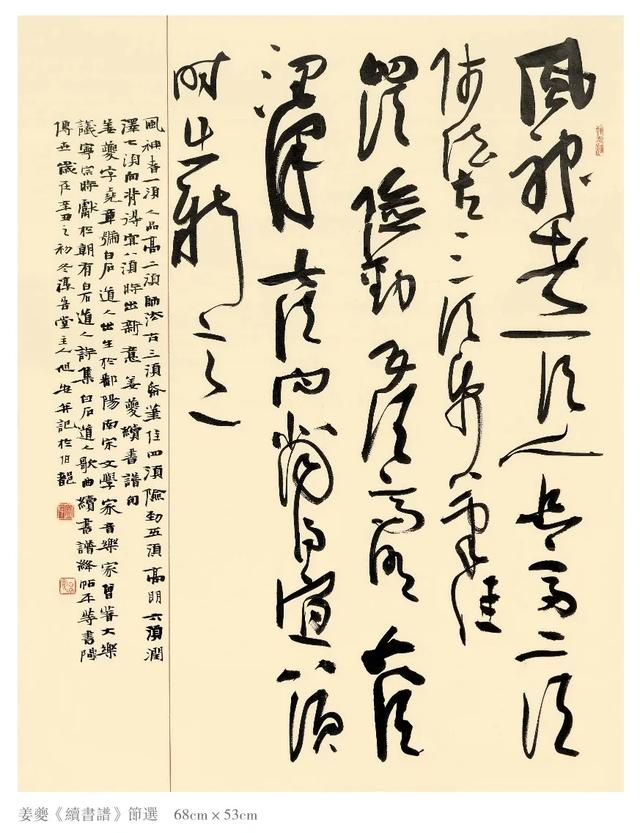 風神者一須人品高二須
師法古三須紙筆佳
四須險勁五須高明六須
潤澤七須向背得宜八須
時出新意
風神者一須人品高二須師法古三須紙筆佳四須險勁五須高明六須潤
澤七須向背得宜八須時出新意姜夔續書譜句
姜夔字堯章號白石道人出生於鄱陽南宋文學家音樂家曾著大樂
議寧宗時獻於朝有白石道人詩集白石道人歌曲續書譜絳帖平等書
傳世歲在辛丑之初冬堂主人旭安并記於
姜夔《續書譜》節選 68cm×53cm